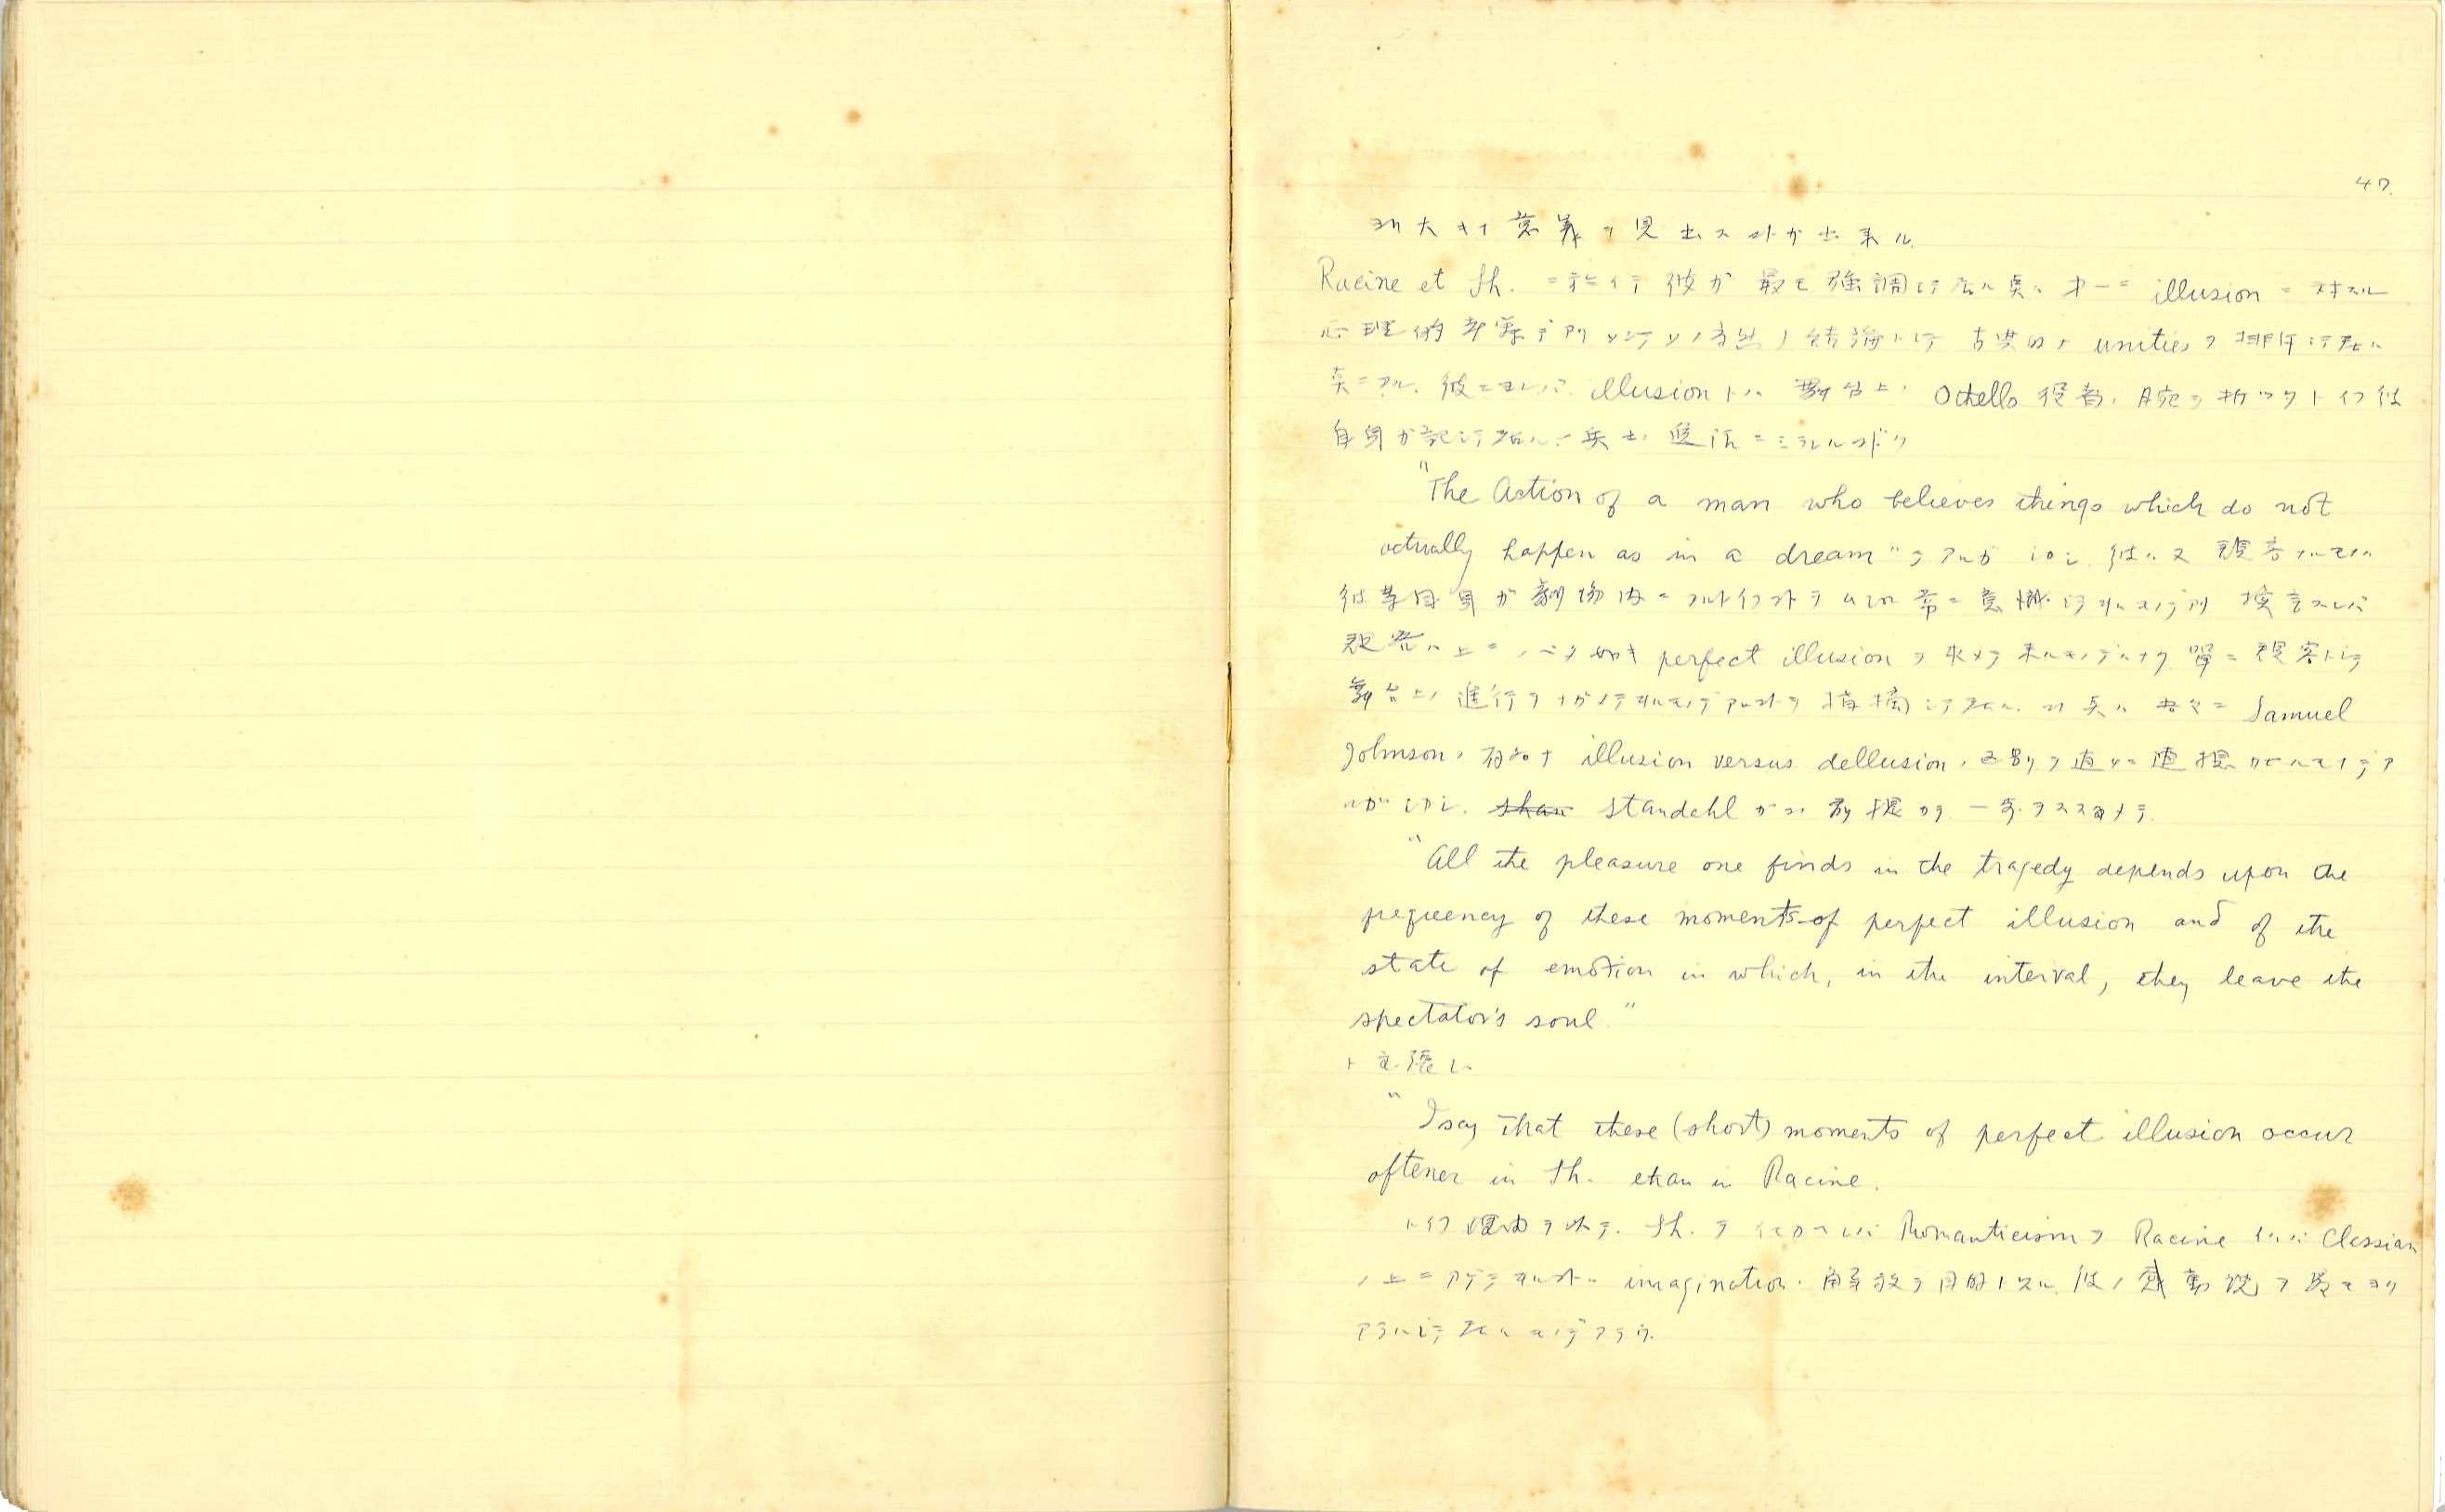 47.
大キナ意義ヲ見出スコトガ出来ル.
Racine et Sh. ニ於イテ彼ガ最モ強調シテ居ル点ハ 才一ニ illusion ニ対スル
心理的 結論トシテ 古典的ナ unities ヲ排斥シテ居ル
点ニアル. 彼ニヨレバ illusion トハ 舞台上ノ Othello 役者ノ腕ヲ折ッタトイフ彼
自身ガ記シテ居ル 兵士ノ ニミラレルゴトク
"The Action of a man who believes things which do not
actually happen as in a dream" デアルガ シカシ 彼ハ又 観客ナルモノハ
彼等自身ガ劇場内ニアルトイフコトヲ 常ニ意識シテ居ルモノデアリ 換言スレバ
観客ハ 上ニノベタ如キ perfect illusion ヲ求メテ来ルモノデハナク 單ニ現実トシテ
舞台上ノ進行ヲナガメテ居ルモノデアルコトヲ指摘シテ居ル. コノ点ハ 吾々ニ Samuel
Johnson ノ有名ナ illusion versus dellusion ノ区別ヲ直チニ連想サセルモノデア
ルガ シカシ. shan Standahl ガコノ 一歩ヲススメテ
"All the pleasure one finds in the tragedy depends upon the
frequency of these moments of perfect illusion and of the
state of emotion in which, in the interval, they leave the
spectator's soul"
ト主張シ
"I say that these (short) moments of perfect illusion occur
oftener in Sh. than in Racine.
トイフ理由ヲ以テ. Sh. ヲ Romanticism ヲ Racine Classian
ノ上ニアゲテ居ルコトハ imagination ノ解放ヲ目的トスル 彼ノ感動説ヲ最モヨク
アラハシテ居ルモノデアラウ.